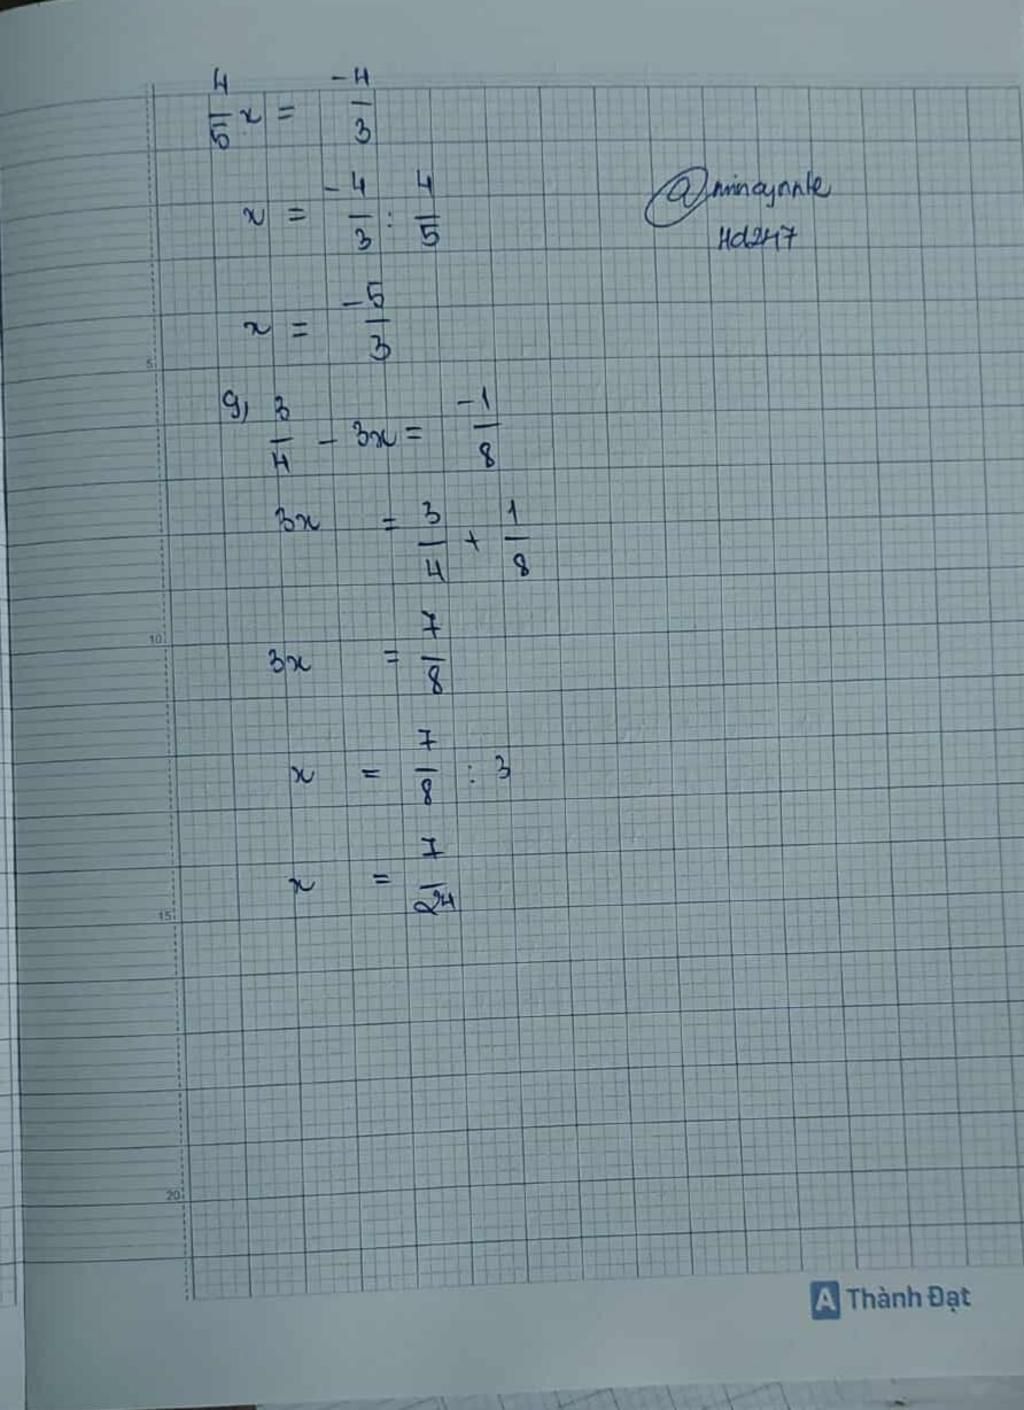 4/5 x = -4/3
x = -4/3 : 4/5
@minaynnle
Hd247
x = -5/3
5
g, 3/4 - 3x = -1/8
3x = 3/4 + 1/8
10
3x = 7/8
x = 7/8 : 3
x = 7/24
15
20
A Thành Đạt